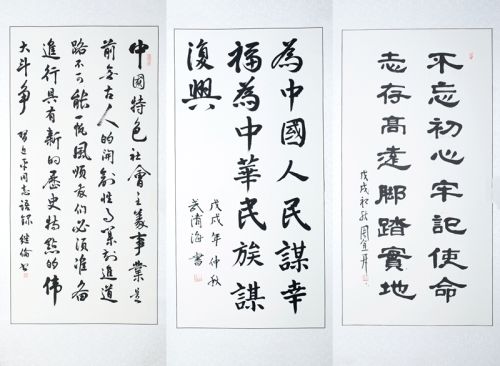 中國特色社會主義事業是
前無古人的開創性事業前進道
路不可能一帆風順我们必須准备
進行具有新的歷史特點的偉
大斗争 习近平同志語録 继倫书
為中國人民謀幸
福為中華民族謀
復興
戊戌年仲秋
武清海書
不忘初心牢記使命
志存高遠腳踏實地
戊戌初秋